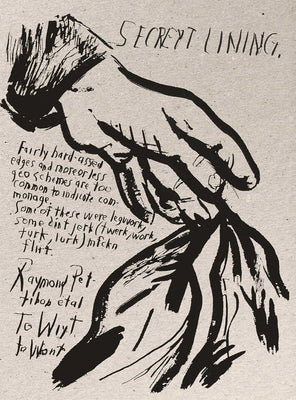 SECREYT LINING.
Fairly hard-assed
edges and more or less
geo schemes are too
common to indicate com-
monage.
Some of these were legwork,
some dint jerk (twerk, work,
turk, lurk) mfckn
flint.
Raymond Pet-
tibon et al
To Wiyt
to Wont